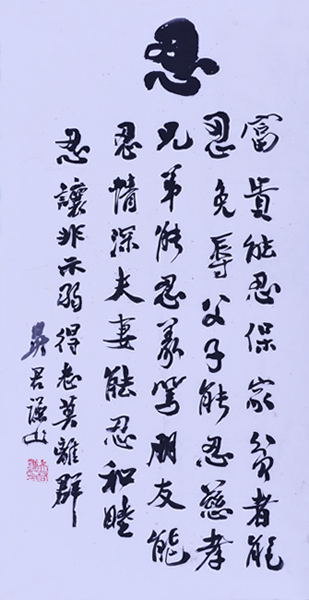 忍
富貴能忍保家貧者能
忍免辱父子能忍慈孝
兄弟能忍義篤朋友能
忍情深夫妻能忍和睦
忍讓非示弱得志莫離群
吳君